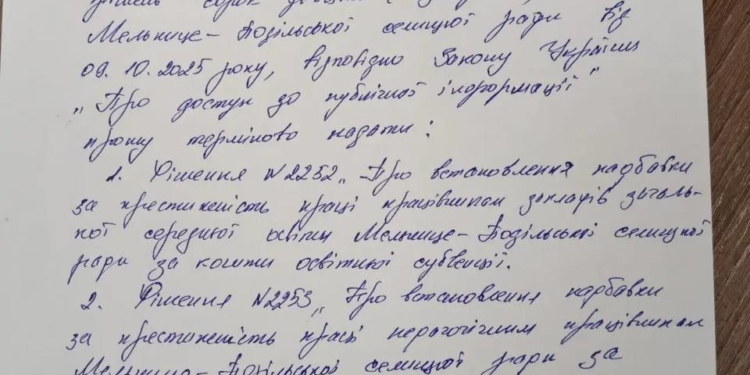 сорок
Мельнице-Подільської селищної ради від
09.10.2025 року, відповідно Закону України
„Про доступ до публічної інформації"
прошу терміново надати:
1. Рішення №2252 „Про встановлення надбавки
за престижність праці працівникам закладів загаль-
ної середньої освіти Мельнице-Подільської селищної
ради за кошти освітньої субвенції.
2. Рішення №2253 „Про встановлення надбавки
за престижність праці педагогічним працівникам
Мельнице-Подільської селищної ради за